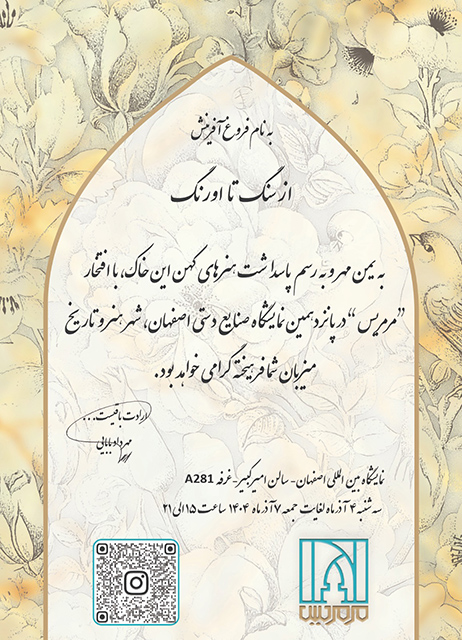 به نام فروغ آفرینش
از سنگ تا اورنگ
به یمن مهر و به رسم پاسداشت هنرهای کهن این خاک، با افتخار
”مرمریس“ در پانزدهمین نمایشگاه صنایع دستی اصفهان، شهر هنر و تاریخ
میزبان شما فرهیخته گرامی خواهد بود.
ارادت باقیست...
مهرداد بابایی
نمایشگاه بین المللی اصفهان- سالن امیرکبیر-غرفه A281
سه شنبه ۴ آذرماه لغایت جمعه ۷ آذرماه ۱۴۰۴ ساعت ۱۵ الی ۲۱
مرمریس